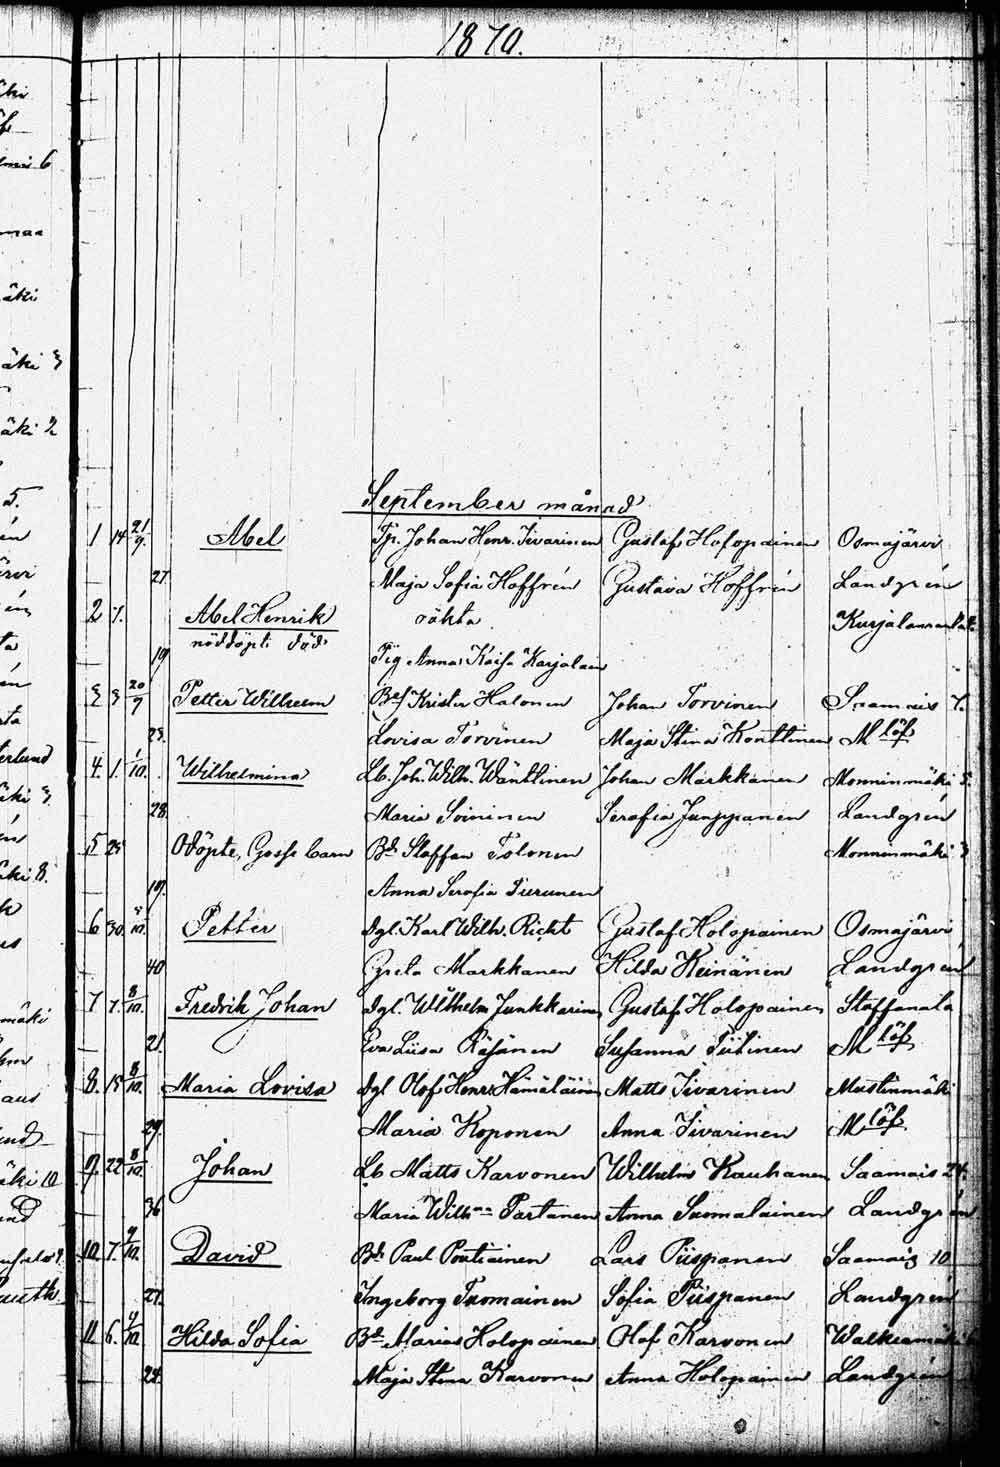 1870.
September månad
1 14 21/9. Abel Tp. Johan Henr. Iivarinen Gustaf Holopainen Osmajärvi
27. Maja Sofia Hoffrén Gustava Hoffrén Landgrén
2 7. Abel Henrik oäkta
nöddöpt. död
19 Pig Anna Kaisa Karjalain
3 3 20/9 Petter Wilhelm Krister Halonen Johan Torvinen Saamais 7.
23. Lovisa Torvinen Maja Stina Konttinen M löf
4. 1. 1/10. Wilhelmina Lb. Joh. Wilh. Wänttinen Johan Markkanen Monninmäki 5.
28. Maria Soininen Serafia Junppanen Landgrén
5 25 Odöpte, Gosse barn Bd Staffan Tolonen Monninmäki
19. Anna Serafia Turunen
6 30. /10. Petter dgl. Karl Wilh. Richt Gustaf Holopainen Osmajärvi
40 Greta Markkanen Hilda Keinänen Landgrén
7 7. 8/10. Fredrik Johan dgl. Wilhelm Junkkarinen Gustaf Holopainen Staffanala
21. Eva Liisa Räsänen Susanna Tiitinen M löf
8. 15 8/10. Maria Lovisa dgl Olof Henr. Hämäläinen Matts Iivarinen Mustinmäki
29. Maria Koponen Anna Iivarinen M löf
9. 22 8/10. Johan Lb Matts Karvonen Wilhelm Kauhanen Saamais 24.
36 Maria Wilhna Partanen Anna Suomalainen Landgrén
10. 7. 9/10. David Bd Paul Pontiainen Lars Piispanen Saamais 10
27. Ingeborg Tuomainen Sofia Piispanen Landgrén
11. 6. 9/10 Hilda Sofia Bd Holopainen Olof Karvonen
24. Maja Stina Karvonen Anna Holopainen Landgrén